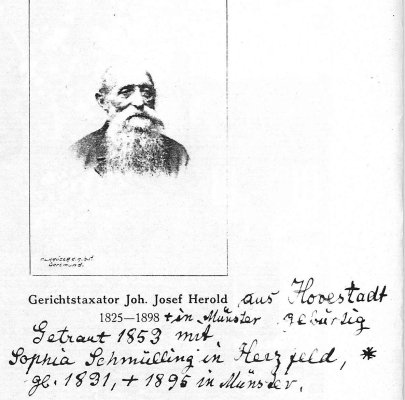 Dortmund.
Gerichtstaxator Joh. Josef Herold aus Hovestadt
1825—1898 + in Münster gebürtig
Getraut 1853 mit
Sophia Schmülling in Herzfeld, *
gb. 1831, + 1895 in Münster.